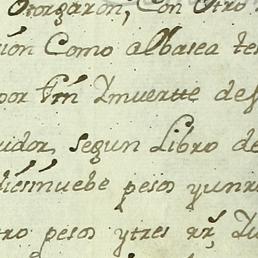 Otorgaron, Con Otro
ión Como albasea te
por fin Ymuertte de
uidor, segun Libro de
diesinuebe pesos yun r
tro pesos ytres rr.